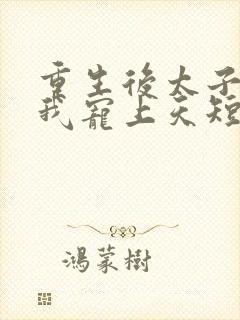 重生後太子
我寵上天短
鴻蒙樹